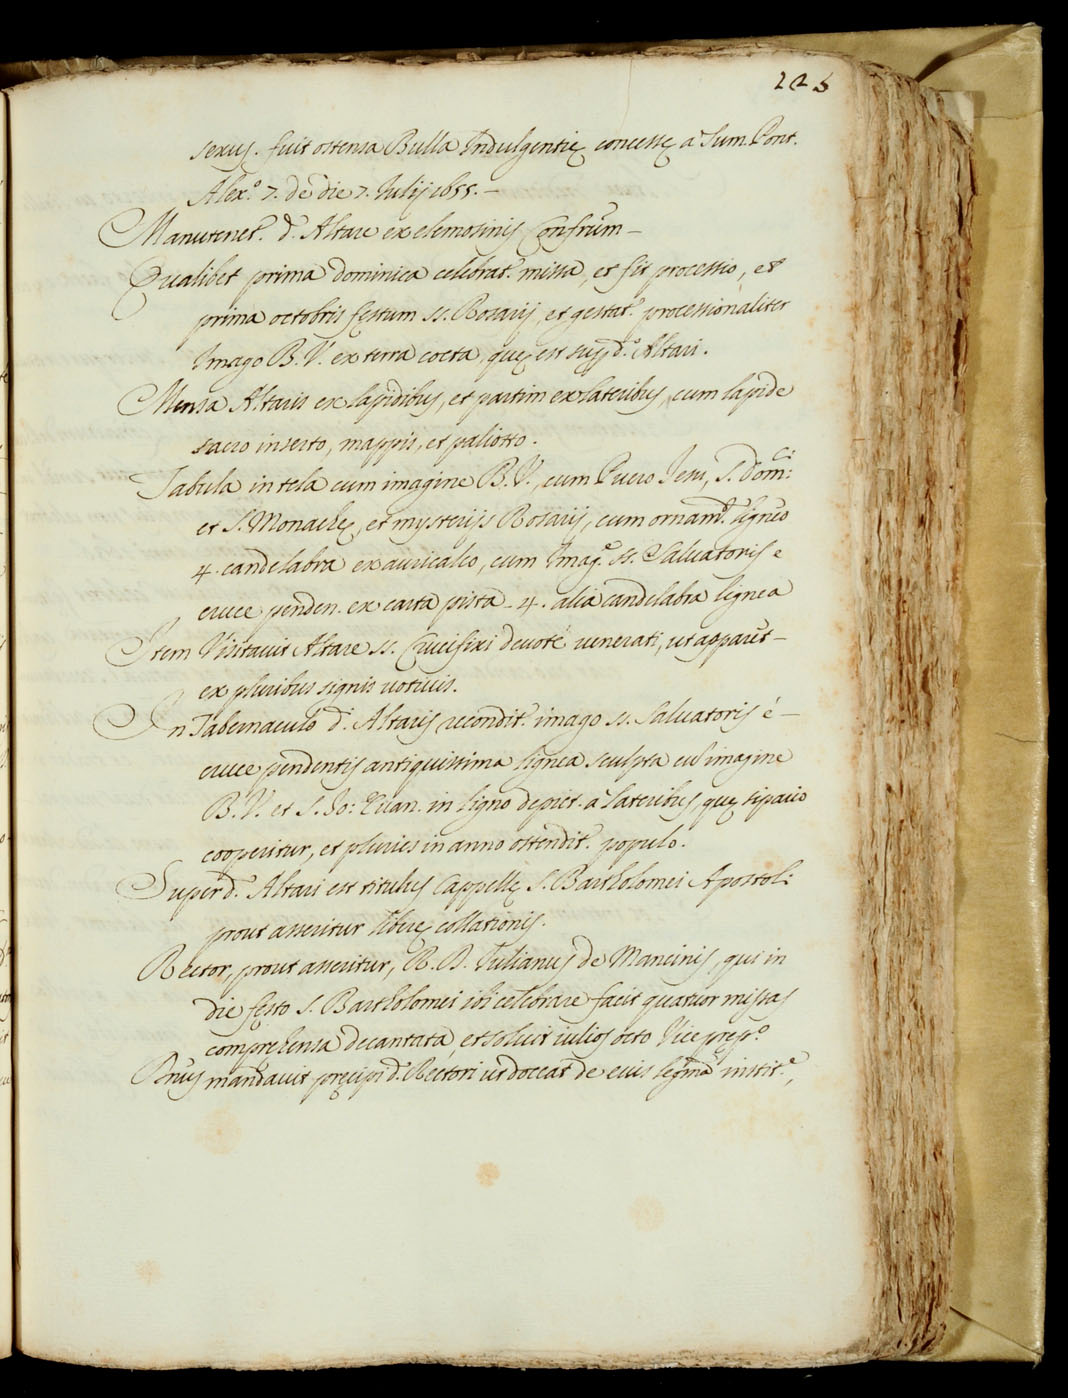 225
sexus. fuit ostensa Bulla Indulgentię concessę a Sum. Pont.
Alex.º 7. de die 7. Iulij 1655. –
Manutenet.r d. Altare ex elemosinis Confrum –
Qualibet prima dominica celebrat.r missa, et fit processio, et
prima octobris fęstum ss. Rosarij, et gestat.r processionaliter
Imago B. V. ex terra cocta, quę est sup. d.º Altari.
Mensa Altaris ex lapidibus, et partim ex lateribus, cum lapide
sacro inserto, mappis, et paliotto.
Tabula in tela cum imagine B. V., cum Puero Iesu, S. Dom:ci
et S. Monachę, et mysterijs Rosarij, cum ornam.to ligneo
4. candelabra ex auricalco, cum Imag.e ss. Saluatoris e
cruce penden. ex carta pista – 4. alia candelabra lignea
Item Visitauit Altare ss. Crucifixi deuotè uenerati, ut apparet –
ex pluribus signis uotiuis.
In Tabernaculo d. Altaris recondit.r imago ss. Saluatoris é –
cruce pendentis antiquissima lignea sculpta cũ imagine
B. V. et S. Io: Euan. in ligno depict. à lateribus, quę sipario
cooperitur, et pluries in anno ostendit.r populo.
Super d. Altari est titulus Cappellę S. Bartholomei Apostoli
prout asseritur liberę collationis.
Rector, prout asseritur, R. D. Iulianus de Mancinis, qui in
die fęsto S. Bartholomei ibi celebrare facit quatuor missas
comprehensa decantata, et soluit iulios octo Vice pręp.º
Dnũs mandauit pręcipi d. Rectori ut doceat de eius legma instit.e,